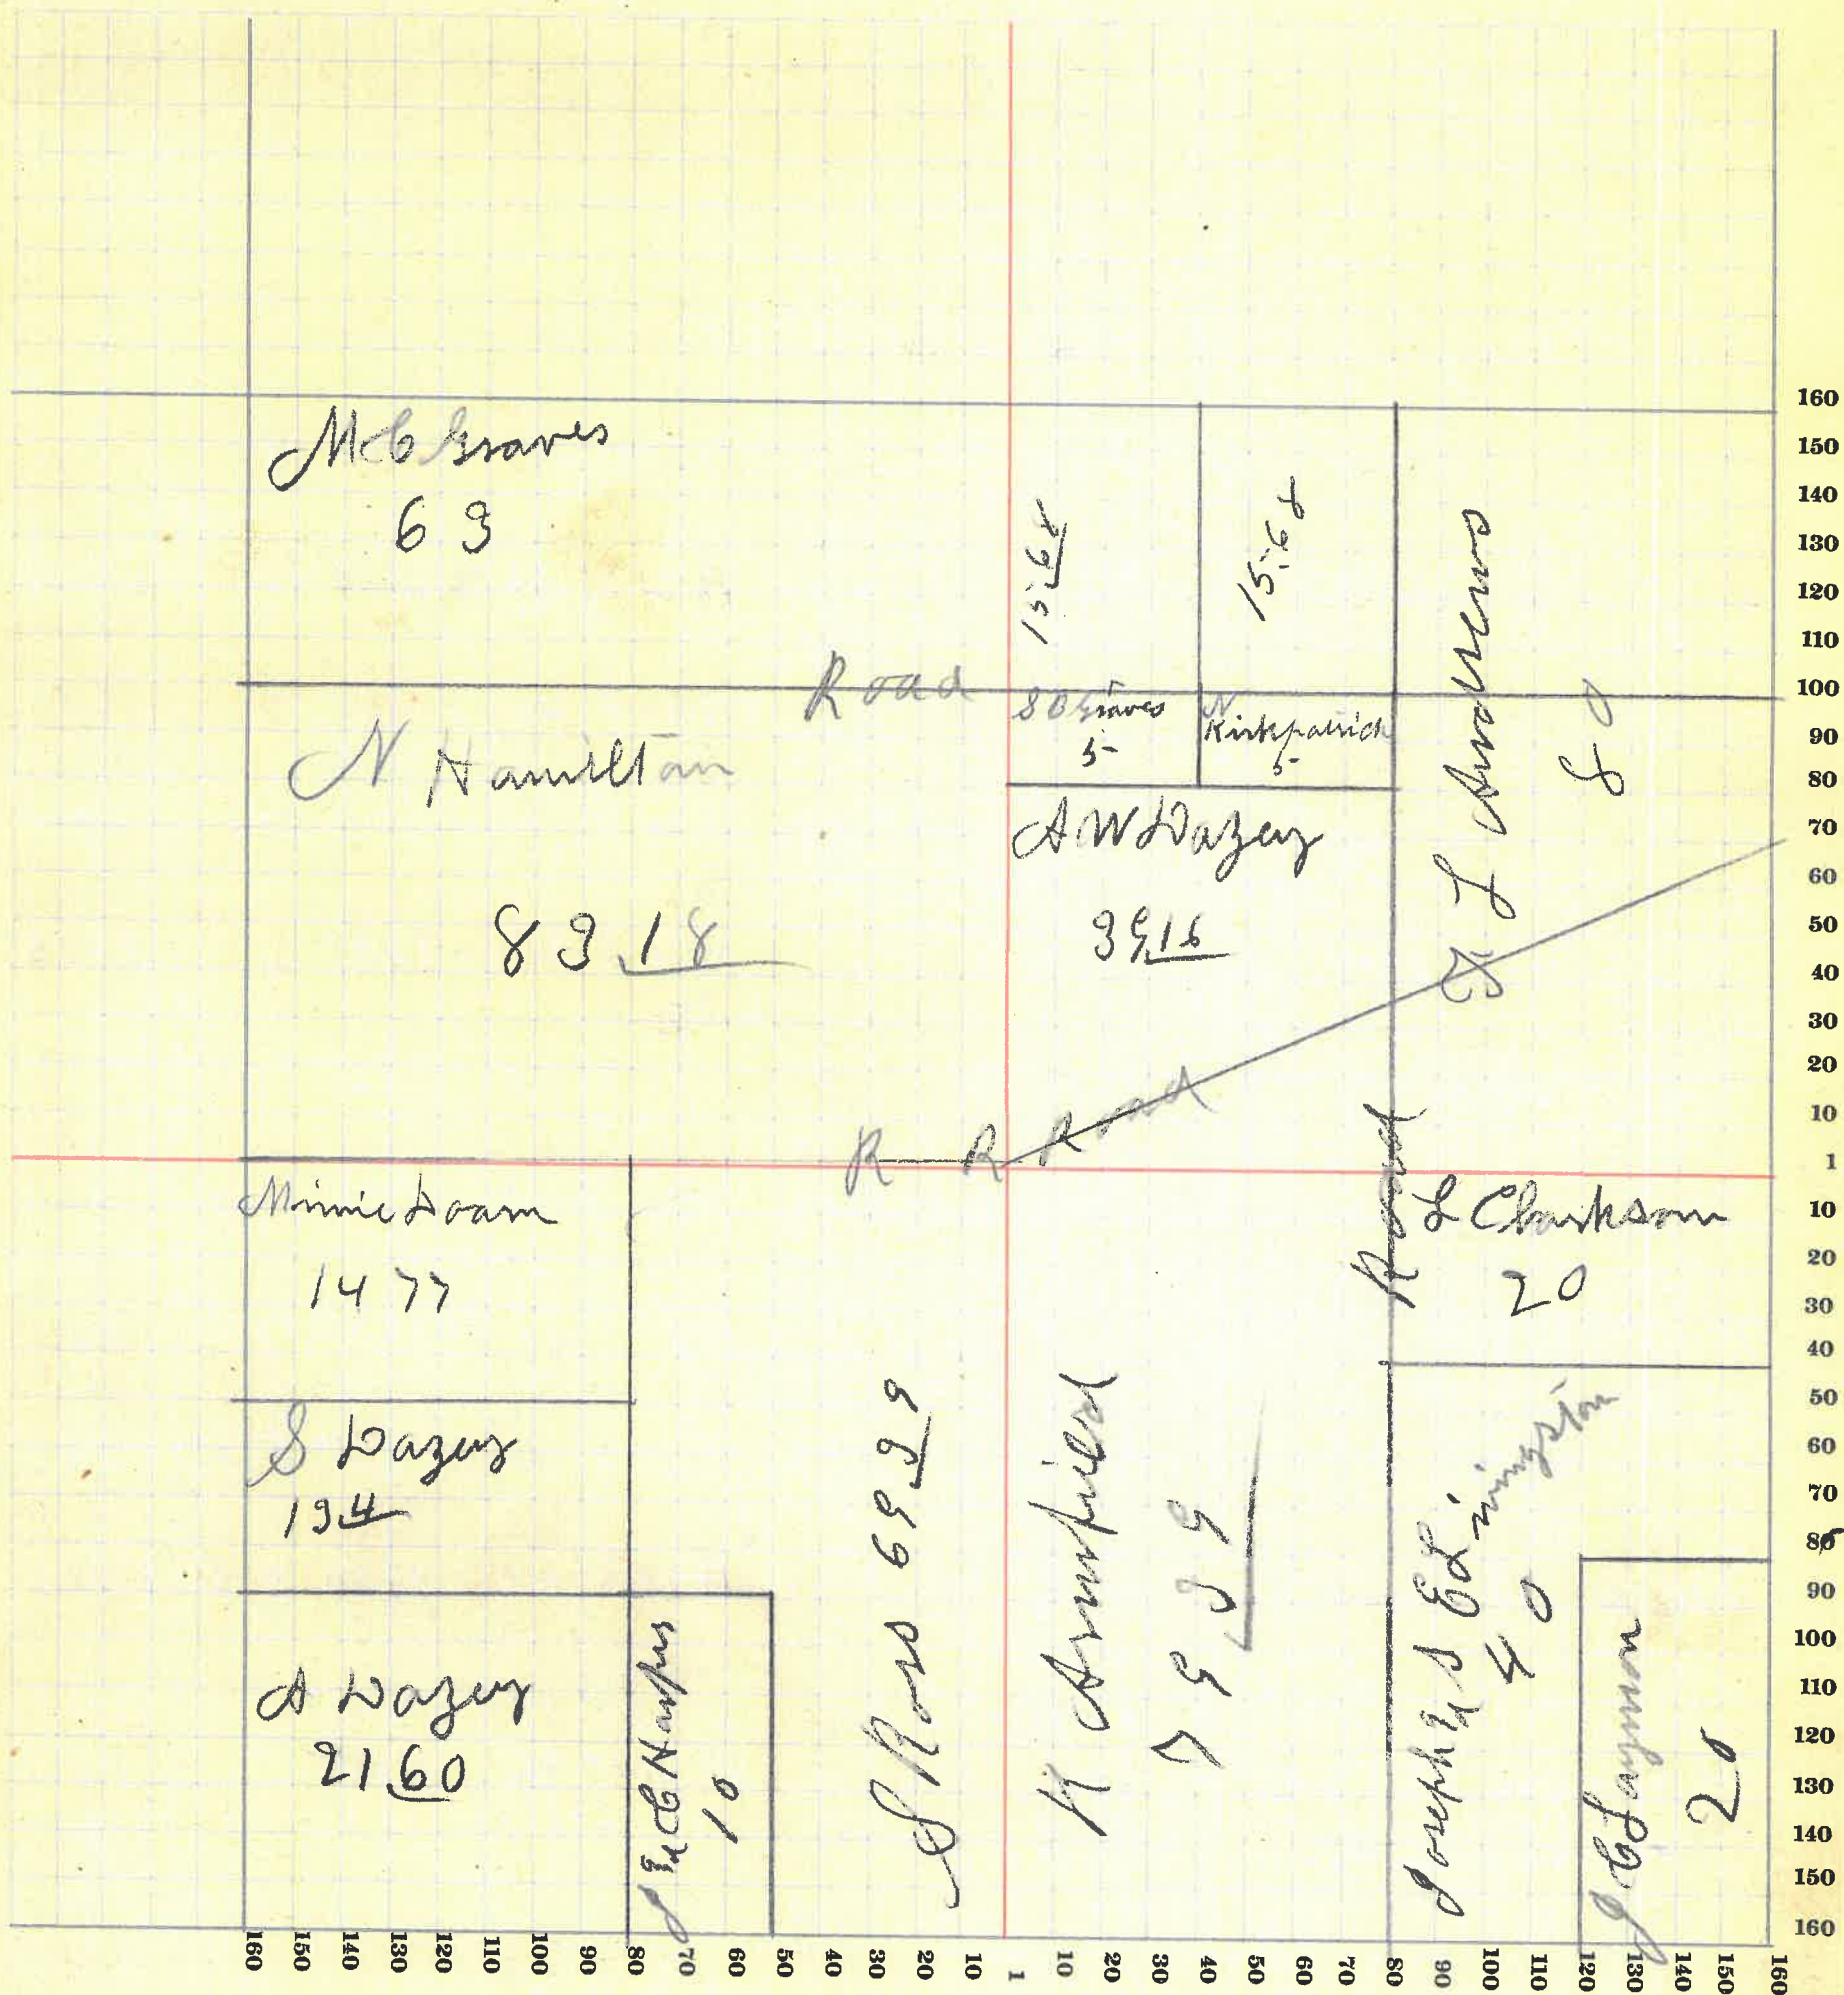 M C Graves
63
15.68
15.68
Road
S D Graves
5
N
Kirkpatrick
5
N Hamilton
83.18
A W Dazey
39.16
L Andrews
80
R R Road
Road
Minnie Doam
1477
L Clarkson
20
S Dazey
19.4
S Ross 69.39
K Armfield
79.39
Joseph & S E Livingston
40
A Dazey
21.60
J & C C Harper
10
J C Layman
20
160
150
140
130
120
110
100
90
80
70
60
50
40
30
20
10
1
10
20
30
40
50
60
70
80
90
100
110
120
130
140
150
160
160 150 140 130 120 110 100 90 80 70 60 50 40 30 20 10 1 10 20 30 40 50 60 70 80 90 100 110 120 130 140 150 160